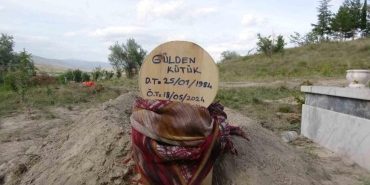 GÜLDEN
KÜTÜK
D.T. 25/01/1984
Ö.T. 18/05/2024